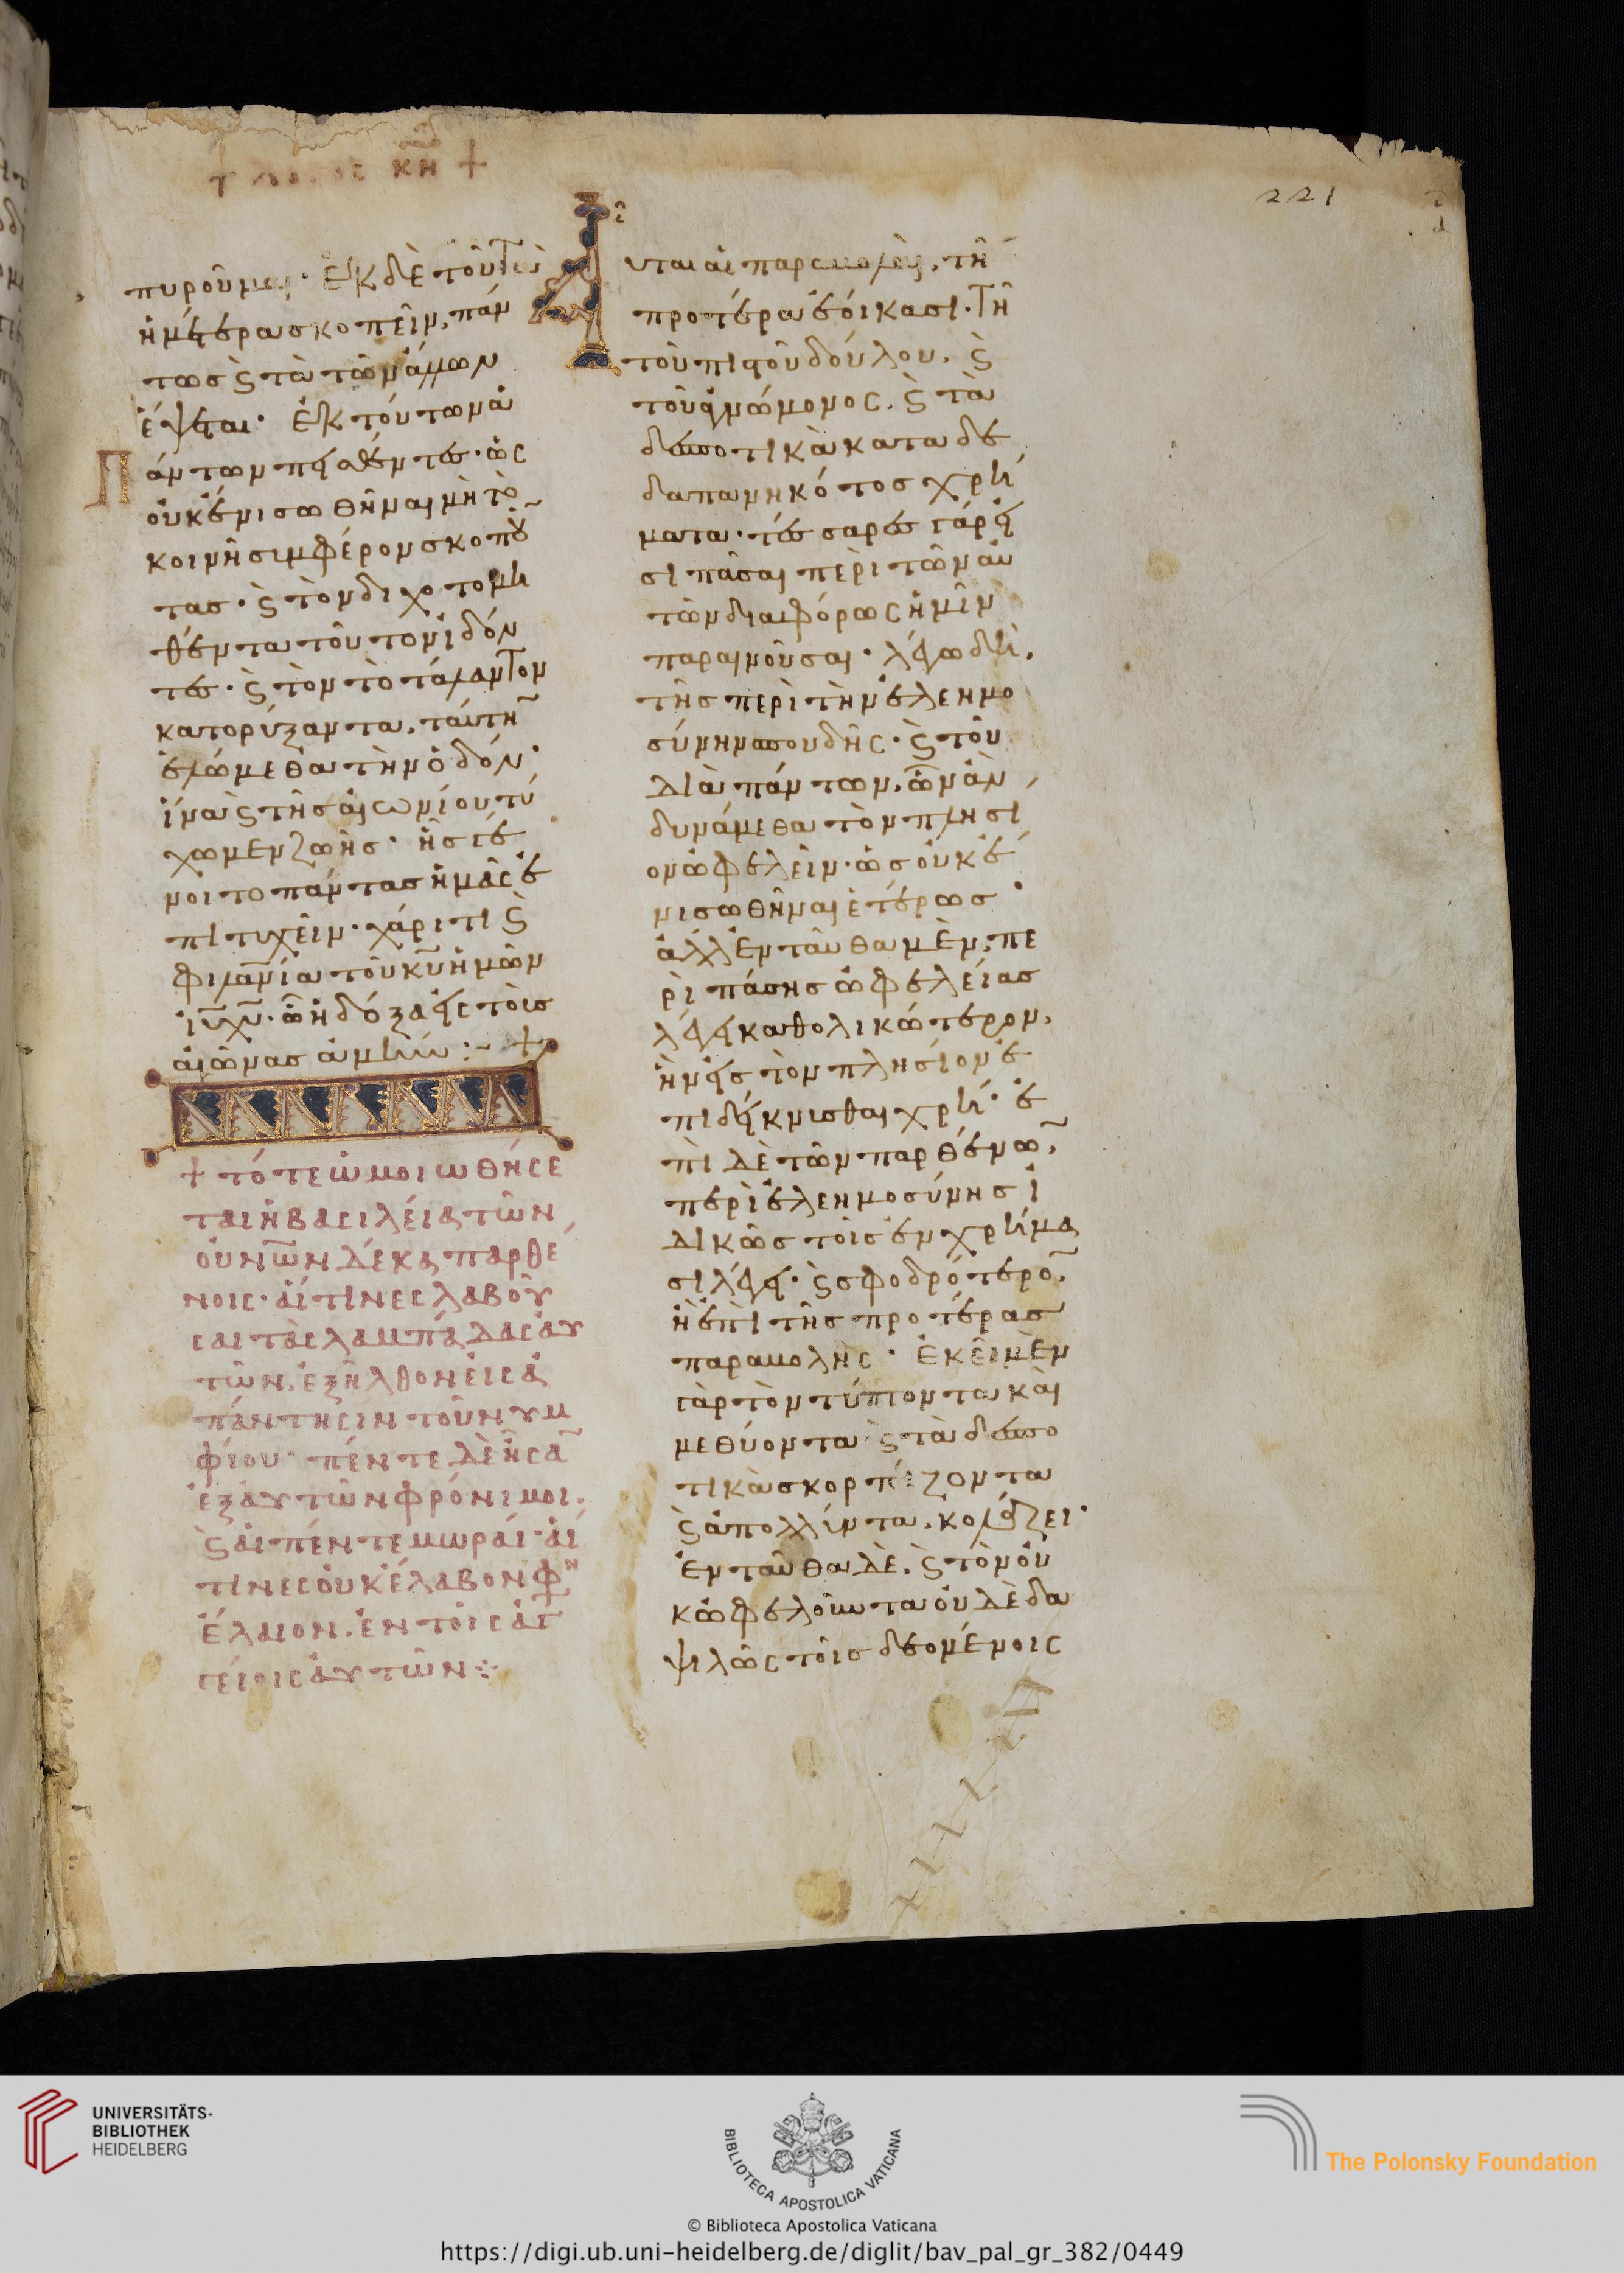 + λόγος κη +
221
πυροῦμαι· ἐκ δὲ τοῦ τὰ
ἡμέτερα σκοπεῖν, πάν
τως ϛ τὰ τῶν ἄλλων
ἕψεται· ἐκ τούτων ἁ
πάντων πεισθέντες· ὡς
οὐκ ἔνι σωθῆναι μὴ τὸ
κοινῆ συμφέρον σκοποῦ
τας· ϛ τὸν διχοτομη
θέντα τοῦτον ἰδόν
τες· ϛ τὸν τὸ τάλαντον
κατορύξαντα, ταύτη
ἑλώμεθα τὴν ὁδόν·
ἵνα ϛ τῆς αἰωνίου τύ
χωμεν ζωῆς· ἧς γέ
νοιτο πάντας ἡμᾶς ἐ
πιτυχεῖν· χάριτι ϛ
φιλανία τοῦ κυ ἡμῶν
ιυ χυ· ὧ ἡ δόξα εἰς τοὺς
αἰῶνας ἀμήν :~ +
+ τότε ὡμοιωθήσε
ται ἡ βασιλεία τῶν
οὐνων δέκα παρθέ
νοις· αἵτινες λαβοῦ
σαι τὰς λαμπάδας ἀυ
τῶν, ἐξῆλθον εἰς ἀ
πάντησιν τοῦ νυμ
φίου· πέντε δὲ ἦσα
ἐξ αὐτῶν φρόνιμοι.
ϛ αἱ πέντε μωραί· αἵ
τινες οὐκ ἔλαβον φη
ἔλαιον. ἐν τοῖς ἀγ
γείοις ἀυτῶν :·
Αὗται αἱ παραβολαὶ, τῆ
προτέρα ἐοίκασι. τῆ
τοῦ πιστοῦ δούλου. ϛ
τοῦ ἀγνώμονος. ϛ τὰ
δεσποτικὰ κατεδε
δαπανηκότος χρή
ματα· τέσσαρες γάρ εἰ
σι πᾶσαι περὶ τῶν αὐ
τῶν διαφόρως ἡμῖν
παραινοῦσαι· λέγω δὴ,
τῆς περὶ τὴν ἐλεημο
σύνην σπουδῆς· ϛ τοῦ
διὰ πάντων, ὧν ἂν
δυνάμεθα τὸν πλησί
ον ὠφελεῖν· ὡς οὐκ ἔ
νι σωθῆναι ἑτέρως·
ἀλλ' ἐνταῦθα μὲν, πε
ρὶ πάσης ὠφελείας
λέγει καθολικώτερον,
ἣν εἰς τὸν πλησίον ἐ
πιδείκνυσθαι χρή· ἐ
πὶ δὲ τῶν παρθένω,
περὶ ἐλεημοσύνης ἰ
δικῶς τοῖς ἐν χρήμα
σι λέγει· ϛ σφοδρότερο,
ἢ ἐπὶ τῆς προτέρας
παραβολῆς· ἐκεῖ μὲν
γὰρ τὸν τύπτοντα καὶ
μεθύοντα ϛ τὰ δεσπο
τικὰ σκορπίζοντα
ϛ ἀπολλύντα, κολάζει·
ἐνταῦθα δὲ, ϛ τὸν οὐ
κ ὠφελοῦντα οὐδὲ δα
ψιλῶς τοῖς δεομένοις
UNIVERSITÄTS-
BIBLIOTHEK
HEIDELBERG
BIBLIOTECA APOSTOLICA VATICANA
The Polonsky Foundation
© Biblioteca Apostolica Vaticana
https://digi.ub.uni-heidelberg.de/diglit/bav_pal_gr_382/0449